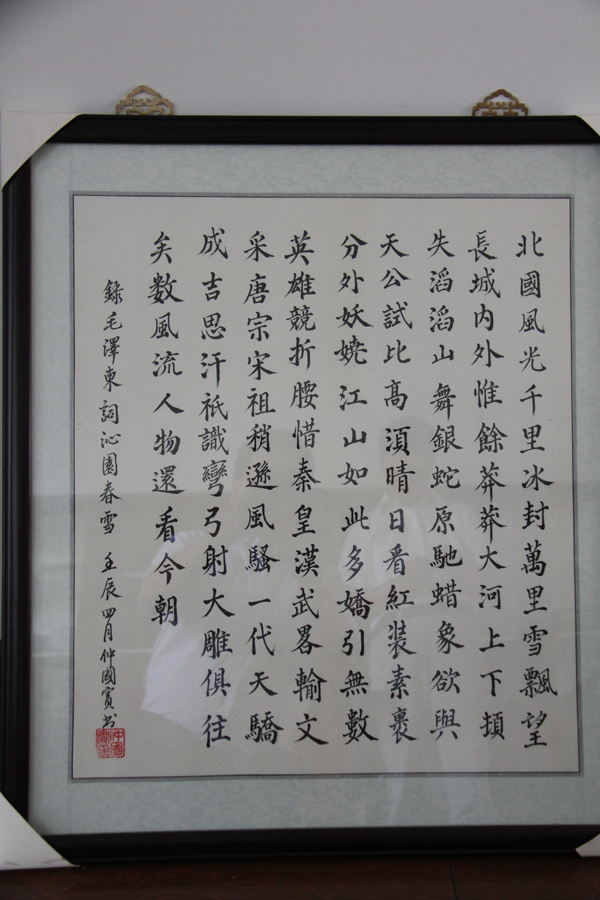 北國風光千里冰封萬里雪飄望
長城内外惟餘莽莽大河上下頓
失滔滔山舞銀蛇原馳蜡象欲與
天公試比髙湏晴日看紅裝素裹
分外妖嬈江山如此多嬌引無數
英雄競折腰惜秦皇漢武畧輸文
采唐宗宋祖稍遜風騷一代天驕
成吉思汗祇識彎弓射大雕俱往
矣数風流人物還看今朝
録毛澤東詞沁園春雪 壬辰四月仲國賓书